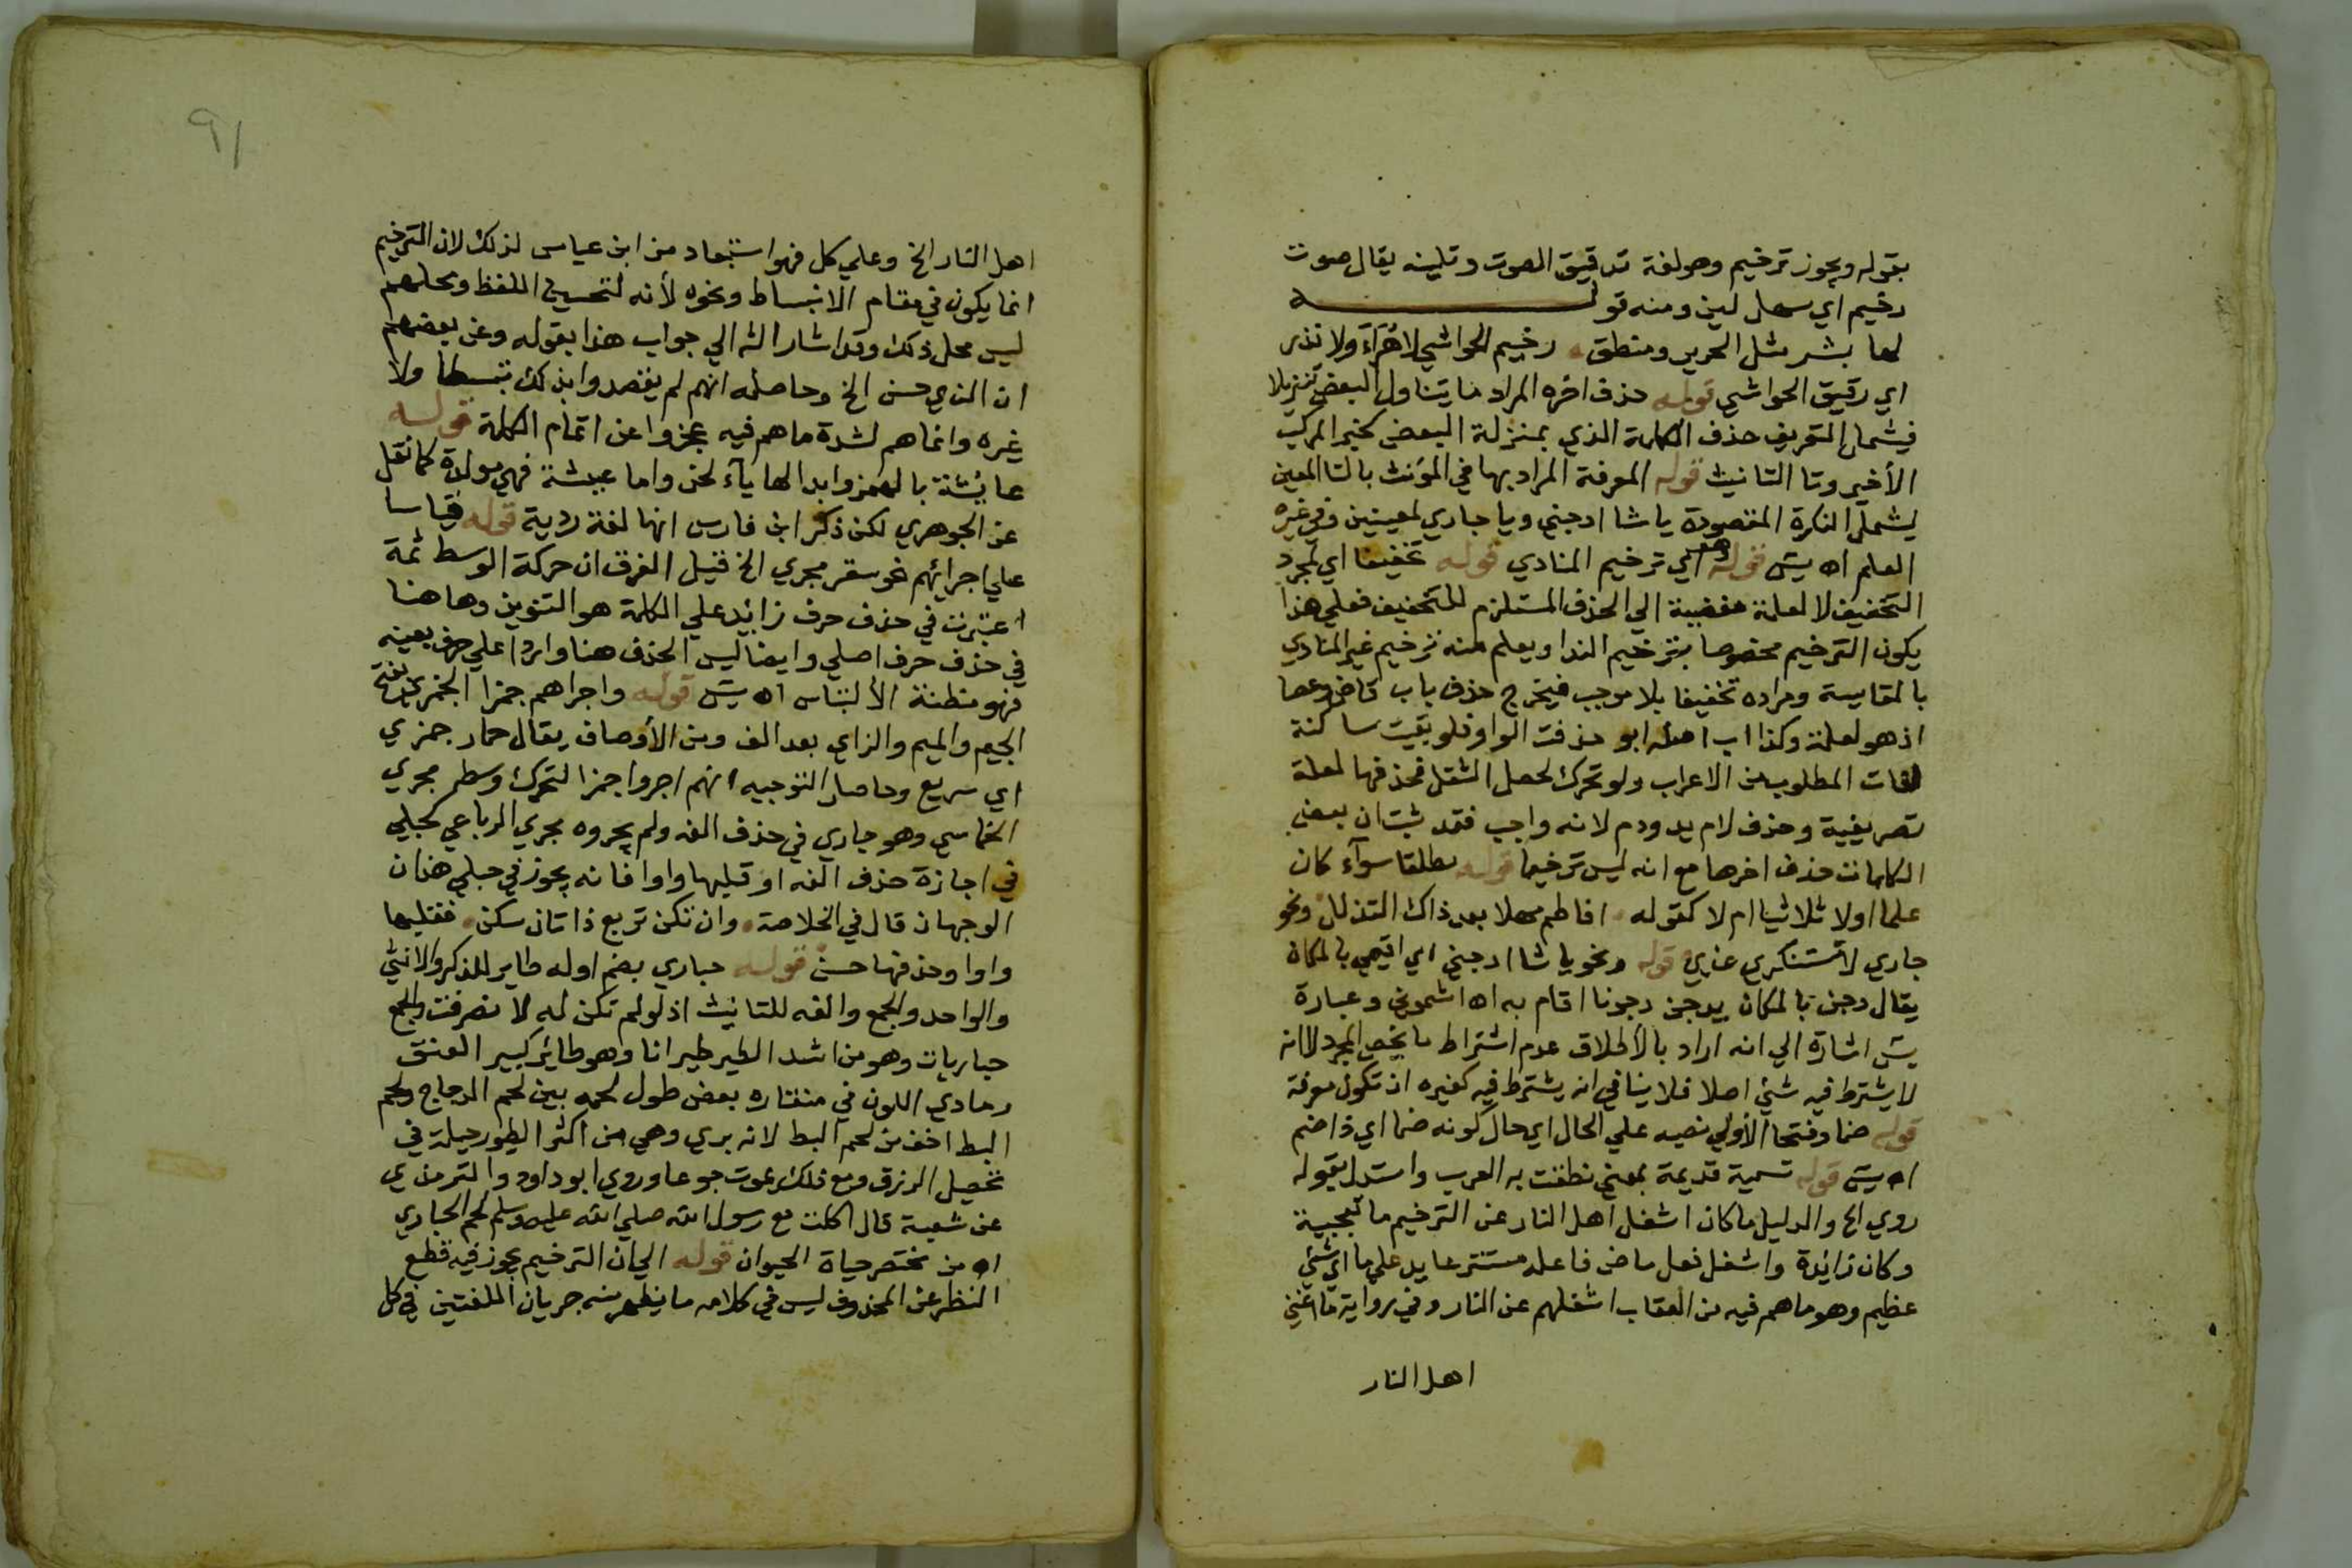 بقوله ويجوز ترخيم وهو لغة ترقيق الصوت وتليينه يقال صوت
رخيم اي سهل لين ومنه قوله
لها بشر مثل الحرير ومنطق رخيم الحواشي لا هراء ولا نذر
اي رقيق الحواشي قوله حذف اخره المراد ما يتناول البعض تنزيلا
فيشمل التعريف حذف الكلمة الذي بمنزلة البعض كخبر المركب
الأخير وتا التانيث قوله المعرفة المراد بها في المؤنث بالتا المعين
ليشمل النكرة المقصودة يا شا ادجني ويا جاري لمعينين وفي غيره
العلم اه يس قوله وهو اي ترخيم المنادي قوله تخفيفا اي لمجرد
التخفيف لا لعلة مفضية الي الحذف المستلزم للتخفيف فعلي هذا
يكون الترخيم مخصوصا بترخيم الندا ويعلم منه ترخيم غير المنادي
بالمقايسة ومراده تخفيفا بلا موجب فيخرج حذف باب قاض وعصا
اذ هو لعلة وكذا اب اصله ابو حذفت الواو فلو بقيت ساكنة
لفات المطلوب من الاعراب ولو تحرك لحصل الثقل فحذفها لعلة
تصريفية وحذف لام يد ودم لانه واجب فقد ثبت ان بعض
الكلمات حذف اخرها مع انه ليس ترخيما قوله مطلقا سوآء كان
علما اولا ثلاثيا ام لا كقوله افاطم مهلا بعد ذاك التدلل ونحو
جاري لا تستنكري عذيري قوله ونحو يا شا ادجني اي اقيمي بالمكان
يقال دجن بالمكان يدجن دجونا اقام به اه اشموني وعبارة
يس اشارة الي انه اراد بالأطلاق عدم اشتراط ما يخص المجرد لا انه
لا يشترط فيه شئ اصلا فلا ينافي انه يشترط فيه كغيره ان تكون معرفة
قوله ضما وفتحا الأولي نصبه علي الحال اي حال كونه ضما اي ذا ضم
اه يس قوله تسمية قديمة بمعني نطقت به العرب واستدل بقوله
روي الخ والدليل ما كان اشغل اهل النار عن الترخيم ما تعجبية
وكان زائدة واشغل فعل ماض فاعله مستتر عايد علي ما اي شئ
عظيم وهو ما هم فيه من العقاب اشغلهم عن النار وفي رواية ما اغني
اهل النار
٩١
اهل النار الخ وعلي كل فهو استبعاد من ابن عباس لذلك لان الترخيم
انما يكون في مقام الانبساط ونحوه لأنه لتحسين اللفظ ومحلهم
ليس محل ذلك وقد اشار الش الي جواب هذا بقوله وعن بعضهم
ان الذي حسن الخ وحاصله انهم لم يقصدوا بذلك تبسطا ولا
غيره وانما هم لشدة ما هم فيه عجزوا عن اتمام الكلمة قوله
عايشة بالهمز وابدالها يآء لحن واما عيشة فهي مولدة كما نقل
عن الجوهري لكن ذكر ابن فارس انها لغة ردية قوله قياسا
علي اجرائهم نحو سقر مجري الخ قيل الفرق ان حركة الوسط ثمة
اعتبرت في حذف حرف زائد علي الكلمة هو التنوين وها هنا
في حذف حرف اصلي وايضا ليس الحذف هنا واردا علي حرف بعينه
فهو مظنة الألتباس اه يس قوله واجراهم جمزا الجمزي بفتح
الجيم والميم والزاي بعد الف ومن الأوصاف يقال حمار جمزي
اي سريع وحاصل التوجيه انهم اجروا جمزا لتحرك وسطه مجري
الخماسي وهو جاري في حذف الفه ولم يجروه مجري الرباعي كحبلي
في اجازة حذف الفه او قلبها واوا فانه يجوز في حبلي هذان
الوجهان قال في الخلاصة وان تكن تربع ذا ثان سكن فقلبها
واوا وحذفها حسن قوله حباري بضم اوله طاير للذكر والانثي
والواحد والجمع والفه للتانيث اذ لو لم تكن له لانصرفت والجمع
حباريات وهو من اشد الطير طيرانا وهو طائر كبير العنق
رمادي اللون في منقاره بعض طول لحمه بين لحم الدجاج ولحم
البط اخف من لحم البط لانه بري وهي من اكثر الطيور حيلة في
تحصيل الرزق ومع ذلك يموت جوعا وروي ابو داود والترمذي
عن شعبة قال اكلت مع رسول الله صلي الله عليه وسلم لحم الحباري
اه من مختصر حياة الحيوان قوله الي ان الترخيم يجوز فيه قطع
النظر عن المحذوف ليس في كلامه ما يظهر منه جريان اللغتين في كل